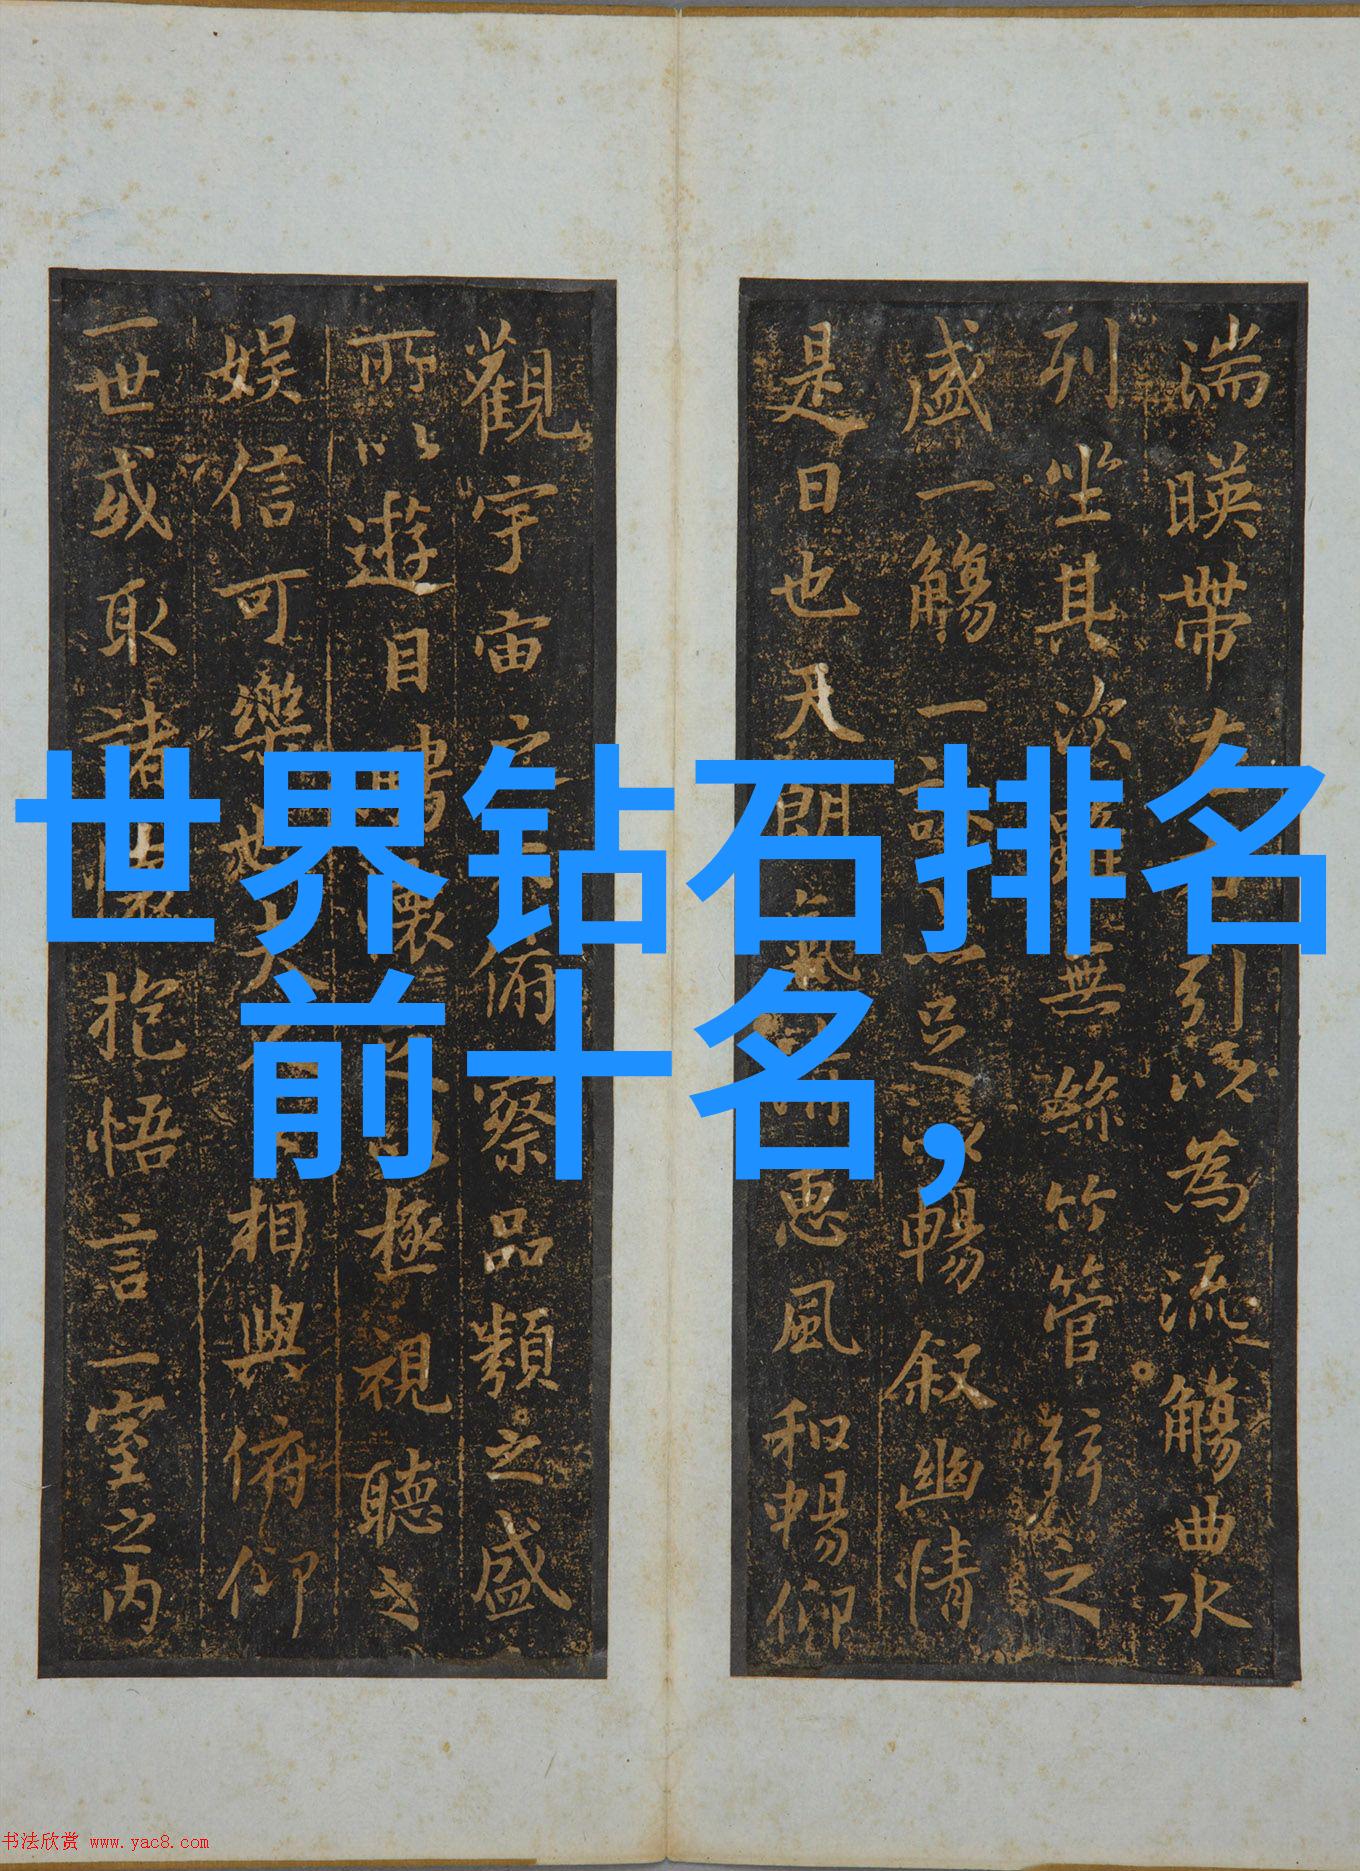 世界钻石排名
前十名,
湍暎帶左右引以為流觴曲水
列坐其次雖無絲竹管弦之
盛一觴一詠亦足以暢叙幽情
是日也天朗氣清惠風和暢仰
觀宇宙之大俯察品類之盛
所以遊目騁懷足以極視聽之
娱信可樂也夫人之相與俯仰
一世或取諸懷抱悟言一室之内
书法欣赏 www.yac8.com